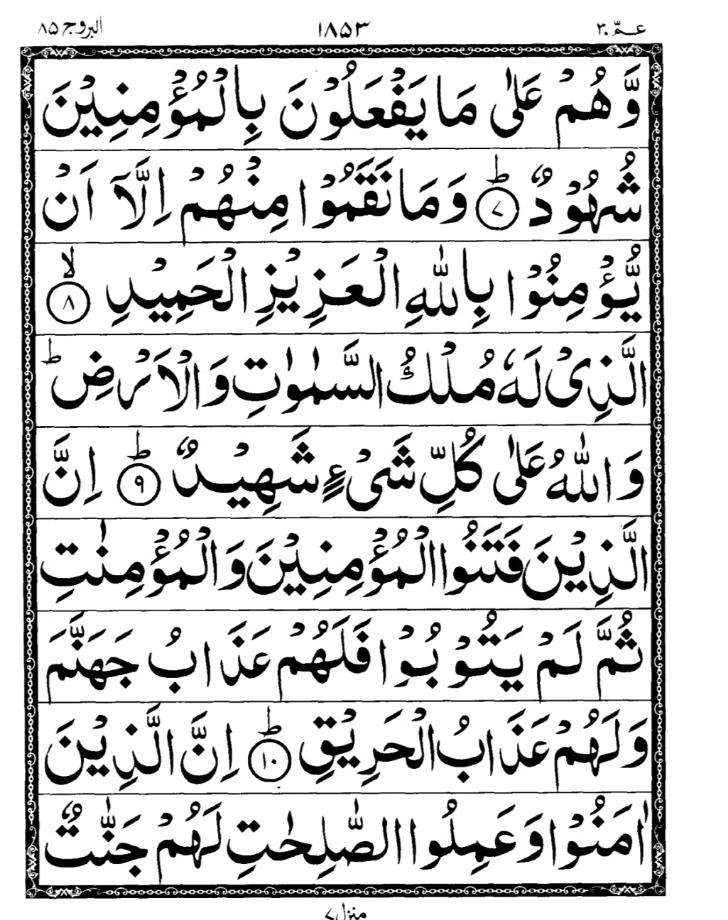 عـمّ ٣٠ ١٨٥٣ البروج ٨٥
وَّهُمْ عَلٰى مَا يَفْعَلُوْنَ بِالْمُؤْمِنِيْنَ
شُهُوْدٌ ؕ﴿۷﴾ وَمَا نَقَمُوْا مِنْهُمْ اِلَّاۤ اَنْ
يُّؤْمِنُوْا بِاللّٰهِ الْعَزِيْزِ الْحَمِيْدِ ۙ﴿۸﴾
الَّذِىْ لَهٗ مُلْكُ السَّمٰوٰتِ وَالْاَرْضِ ؕ
وَاللّٰهُ عَلٰى كُلِّ شَىْءٍ شَهِيْدٌ ؕ﴿۹﴾ اِنَّ
الَّذِيْنَ فَتَنُوا الْمُؤْمِنِيْنَ وَالْمُؤْمِنٰتِ
ثُمَّ لَمْ يَتُوْبُوْا فَلَهُمْ عَذَابُ جَهَنَّمَ
وَلَهُمْ عَذَابُ الْحَرِيْقِ ؕ﴿۱۰﴾ اِنَّ الَّذِيْنَ
اٰمَنُوْا وَعَمِلُوا الصّٰلِحٰتِ لَهُمْ جَنّٰتٌ
منزل ۷